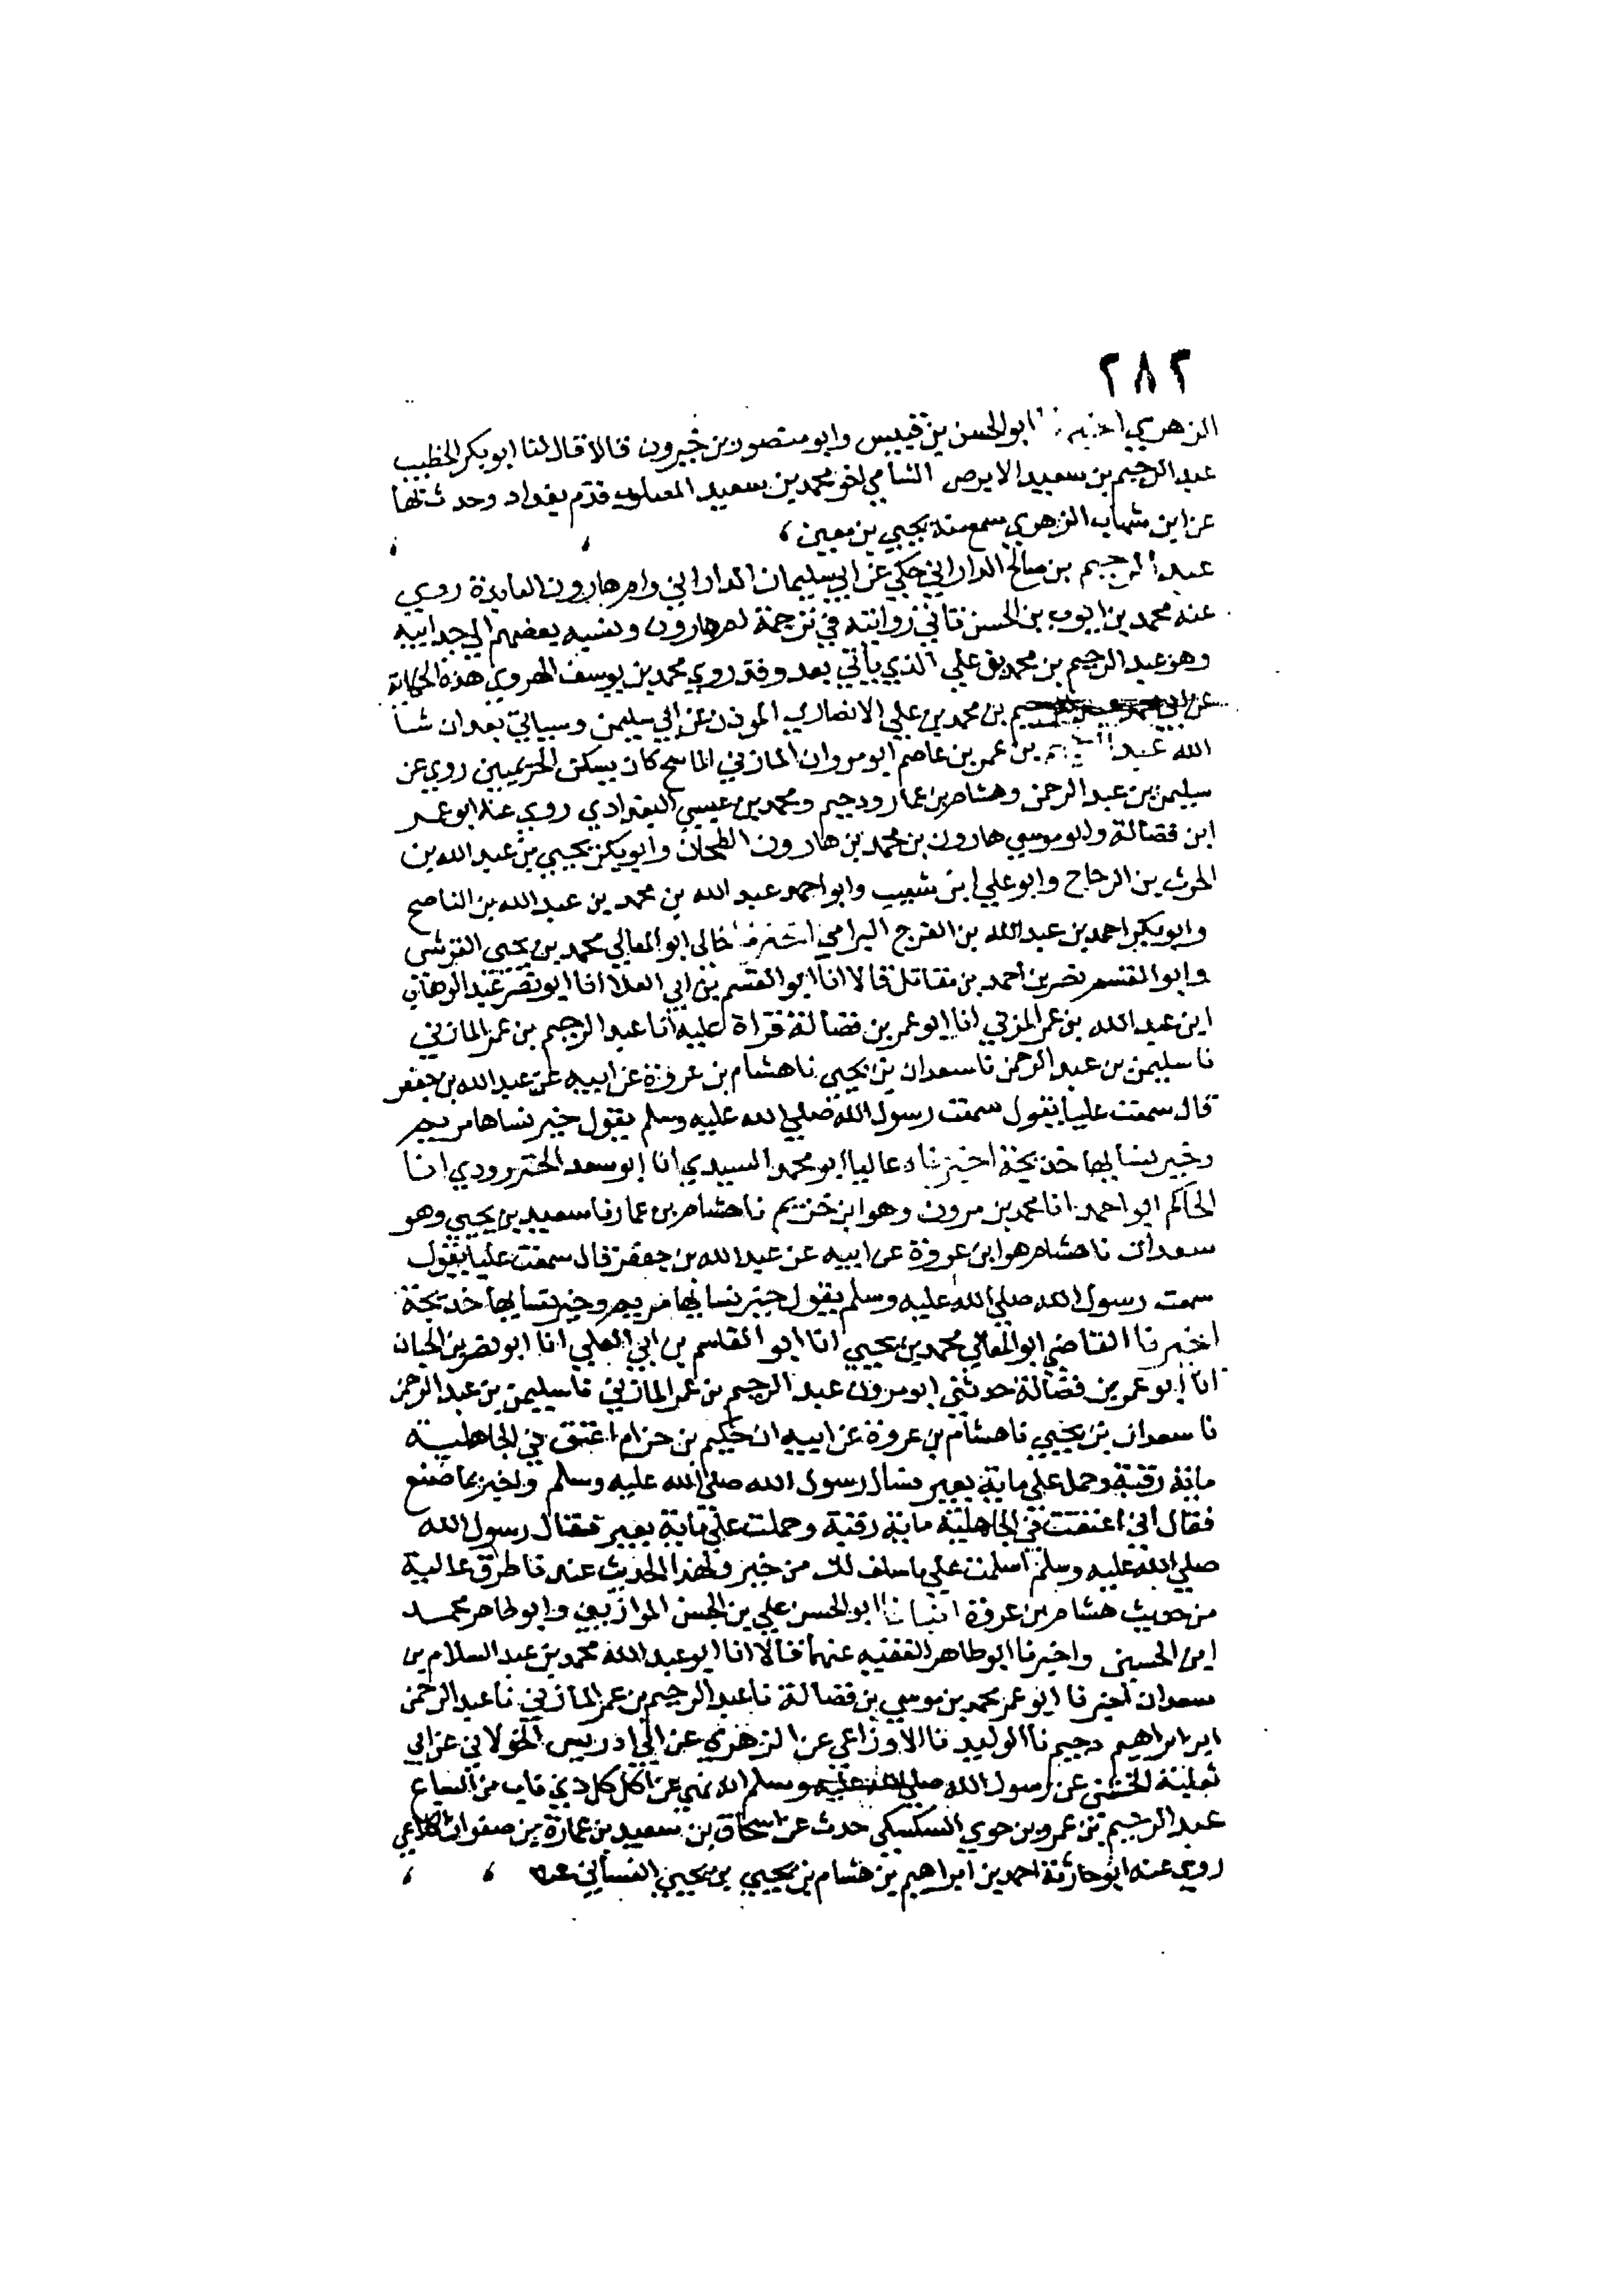 ٢٨٢
الزهري ابو الحسن بن قبيس وابو منصور بن خيرون قالا قال لنا ابو بكر الخطيب
عبد الرحيم بن سعيد الابرص الشامي اخو محمد بن سعيد المصلوب قدم بغداد وحدث بها
عن ابن شهاب الزهري سمع منه يحيي بن معين
عبد الرحيم بن صالح الداراني حكي عن ابي سليمان الداراني وام هارون العابدة روي
عنه محمد بن ايوب بن الحسن تاتي روايته في ترجمة ام هارون ونسبه بعضهم الي جد ابيه
وهو عبد الرحيم بن محمد بن علي الذي ياتي بعد وقد روي محمد بن يوسف الهروي هذه الحكاية
بن محمد بن علي الانصاري الموذن عن ابي سليمن وسياتي بعد ان شا
الله عبد بن عمر بن عاصم ابو مروان المازني كان يسكن روي عن
سليمن بن عبد الرحمن وهشام بن عمار ودحيم ومحمد بن عيسي البغدادي روي عنه ابو عمر
ابن فضالة وابو موسي هارون بن محمد بن هارون الطحان وابو بكر يحيي بن عبد الله بن
الحرث بن الزجاج وابو علي ابن شعيب وابو احمد عبد الله بن محمد بن عبد الله بن الناصح
وابو بكر احمد بن عبد الله بن الفرج البرامي اخبرنا خالي ابو المعالي محمد بن يحيي القرشي
وابو القسم نصر بن احمد بن مقاتل قالا انا ابو القسم بن ابي العلا انا ابو نصر عبد الوهاب
ابن عبد الله بن عمر المزني انا ابو عمر بن فضالة قراة عليه انا عبد الرحيم بن عمر المازني
نا سليمن بن عبد الرحمن نا سعدان بن يحيي نا هشام بن عروة عن ابيه عن عبد الله بن جعفر
قال سمعت عليا يقول سمعت رسول الله صلي الله عليه وسلم يقول خير نساها مريم
وخير نسايها خديجة اخبرناه عاليا ابو محمد السيدي انا ابو سعد الجنزرودي انا
الحاكم ابو احمد انا محمد بن مرون وهو ابن خزيم نا هشام بن عمار نا سعيد بن يحيي وهو
سعدان نا هشام هو ابن عروة عن ابيه عن عبد الله بن جعفر قال سمعت عليا يقول
سمعت رسول الله صلي الله عليه وسلم يقول خير نسايها مريم وخير نسايها خديجة
اخبرنا القاضي ابو المعالي محمد بن يحيي انا ابو القاسم بن ابي العلي انا ابو نصر بن الجبان
انا ابو عمر بن فضالة حدثني ابو مرون عبد الرحيم بن عمر المازني نا سليمن بن عبد الرحمن
نا سعدان بن يحيي نا هشام بن عروة عن ابيه ان حكيم بن حزام اعتق في الجاهلية
ماية رقبة وحمل علي ماية بعير رسول الله صلي الله عليه وسلم بما صنع
فقال اني اعتقت في الجاهلية ماية رقبة وحملت علي ماية بعير فقال رسول الله
صلي الله عليه وسلم اسلمت علي ما سلف لك من خير ولهذا الحديث عندنا طرق عالية
من حديث هشام بن عروة انبانا ابو الحسن علي بن الحسن الموازيني وابو طاهر محمد
ابن الحسين واخبرنا ابو طاهر الفقيه عنهما قالا انا ابو عبد الله محمد بن عبد السلام بن
سعدان اخبرنا ابو عمر محمد بن موسي بن فضالة نا عبد الرحيم بن عمر المازني نا عبد الرحمن
ابن ابراهيم دحيم نا الوليد نا الاوزاعي عن الزهري عن ابي ادريس الخولاني عن ابي
ثعلبة الخشني عن رسول الله صلي الله عليه وسلم انه نهي عن اكل كل ذي ناب من السباع
عبد الرحيم بن عمرو بن حوي السكسكي حدث عن اسحاق بن سعيد بن عمارة بن صفوان الكلاعي
روي عنه ابو حارثة احمد بن ابراهيم بن هشام بن يحيي بن يحيي الغساني